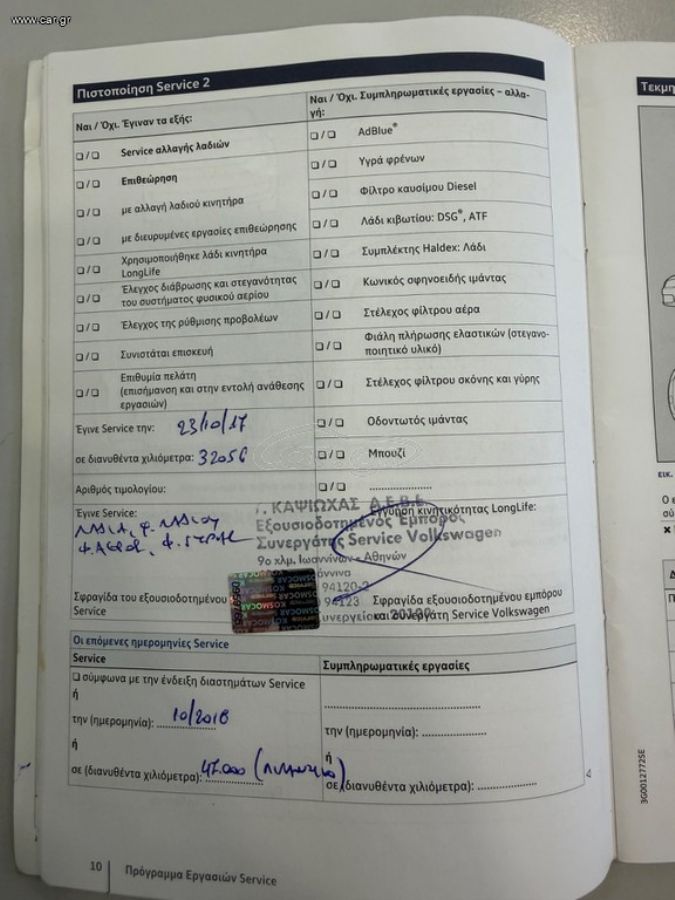 www.car.gr
Πιστοποίηση Service 2
Ναι / Όχι. Έγιναν τα εξής:
Ναι / Όχι. Συμπληρωματικές εργασίες – αλλα-
γή:
❏ / ❏ Service αλλαγής λαδιών
❏ / ❏ AdBlue®
❏ / ❏ Επιθεώρηση
❏ / ❏ Υγρά φρένων
❏ / ❏ με αλλαγή λαδιού κινητήρα
❏ / ❏ Φίλτρο καυσίμου Diesel
❏ / ❏ με διευρυμένες εργασίες επιθεώρησης
❏ / ❏ Λάδι κιβωτίου: DSG®, ATF
❏ / ❏ Χρησιμοποιήθηκε λάδι κινητήρα
LongLife
❏ / ❏ Συμπλέκτης Haldex: Λάδι
❏ / ❏ Έλεγχος διάβρωσης και στεγανότητας
του συστήματος φυσικού αερίου
❏ / ❏ Κωνικός σφηνοειδής ιμάντας
❏ / ❏ Έλεγχος της ρύθμισης προβολέων
❏ / ❏ Στέλεχος φίλτρου αέρα
❏ / ❏ Συνιστάται επισκευή
❏ / ❏ Φιάλη πλήρωσης ελαστικών (στεγανο-
ποιητικό υλικό)
❏ / ❏ Επιθυμία πελάτη
(επισήμανση και στην εντολή ανάθεσης
εργασιών)
❏ / ❏ Στέλεχος φίλτρου σκόνης και γύρης
Έγινε Service την: 23/10/17
❏ / ❏ Οδοντωτός ιμάντας
σε διανυθέντα χιλιόμετρα: 32056
❏ / ❏ Μπουζί
Αριθμός τιμολογίου:
❏ / ❏ ....................
Έγινε Service:
Εγγύηση κινητικότητας LongLife:
Γ. ΚΑΨΙΩΧΑΣ Α.Ε.Β.Ε.
Εξουσιοδοτημένος Έμπορος
Συνεργάτης Service Volkswagen
9ο χλμ. Ιωαννίνων - Αθηνών
94120-2
94123
20100
KOSMOCAR
Σφραγίδα του εξουσιοδοτημένου
Service
Σφραγίδα εξουσιοδοτημένου εμπόρου
και συνεργάτη Service Volkswagen
Οι επόμενες ημερομηνίες Service
Service
Συμπληρωματικές εργασίες
❏ σύμφωνα με την ένδειξη διαστημάτων Service
ή
την (ημερομηνία): 10/2018
την (ημερομηνία): ....................
ή
ή
σε (διανυθέντα χιλιόμετρα): 47.000
σε (διανυθέντα χιλιόμετρα): ..................
10 Πρόγραμμα Εργασιών Service
3G0012772SE
Τεκμη
εικ.